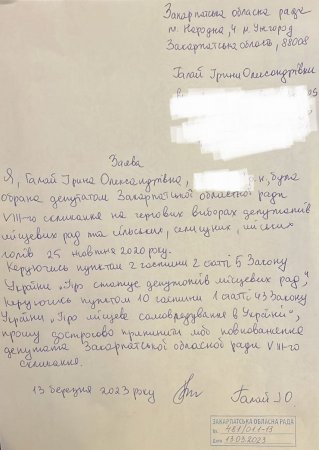 Закарпатська обласна рада
пл. Народна, 4 м. Ужгород
Закарпатська область, 88008
Галай Ірини Олександрівни
Заява
Я, Галай Ірина Олександрівна, р.н., була
обрана депутатом Закарпатської обласної ради
VIII-го скликання на чергових виборах депутатів
місцевих рад та сільських, селищних, міських
голів 25 жовтня 2020 року.
Керуючись пунктом 2 частини 2 статті 5 Закону
України „Про статус депутатів місцевих рад",
керуючись пунктом 10 частини 1 статті 43 Закону
України „Про місцеве самоврядування в Україні",
прошу достроково припинити мої повноваження
депутата Закарпатської обласної ради VIII-го
скликання.
13 березня 2023 року Галай І.О.
ЗАКАРПАТСЬКА ОБЛАСНА РАДА
№ 481/01.1-13
Дата 13.03.2023